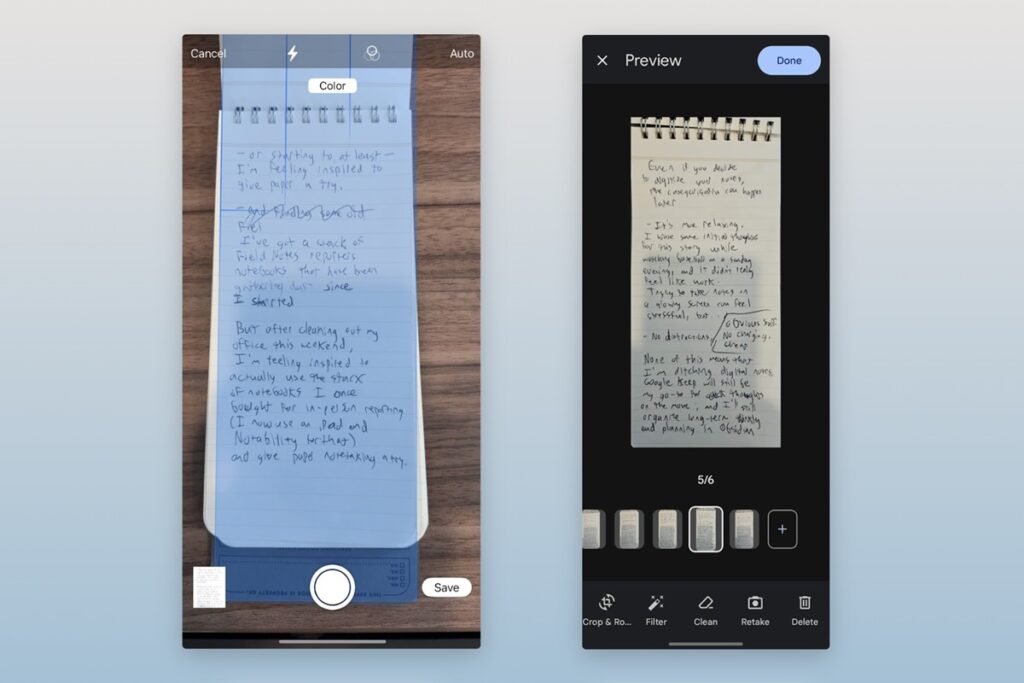 Cancel
Auto
Color
- or starting to at least -
I'm feeling inspired to
give paper a try.
- and
Feel
I've got a stack of
Field Notes reporters
notebooks that have been
gathering dust since
I started
But after cleaning out my
office this weekend,
I'm feeling inspired to
actually use the stack
of notebooks I once
bought for in-person reporting
(I now use an iPad and
Notability for that)
and give paper notetaking a try.
Save
Preview
Done
Even if you decide
to digitize your notes,
the categorization can happen
later
- It's more relaxing.
I wrote some initial thoughts
for this story while
watching baseball on a Sunday
evening, and it didn't really
feel like work.
Trying to take notes on
a glowing screen can feel
stressful, but..
- No distractions
Obvious stuff
No charging,
cheap
None of this means that
I'm ditching digital notes
Google Keep will still be
my go-to for thoughts
on the move, and I'll still
organize long-term thinking
and planning in Obsidian
5/6
Crop & Ro...
Filter
Clean
Retake
Delete